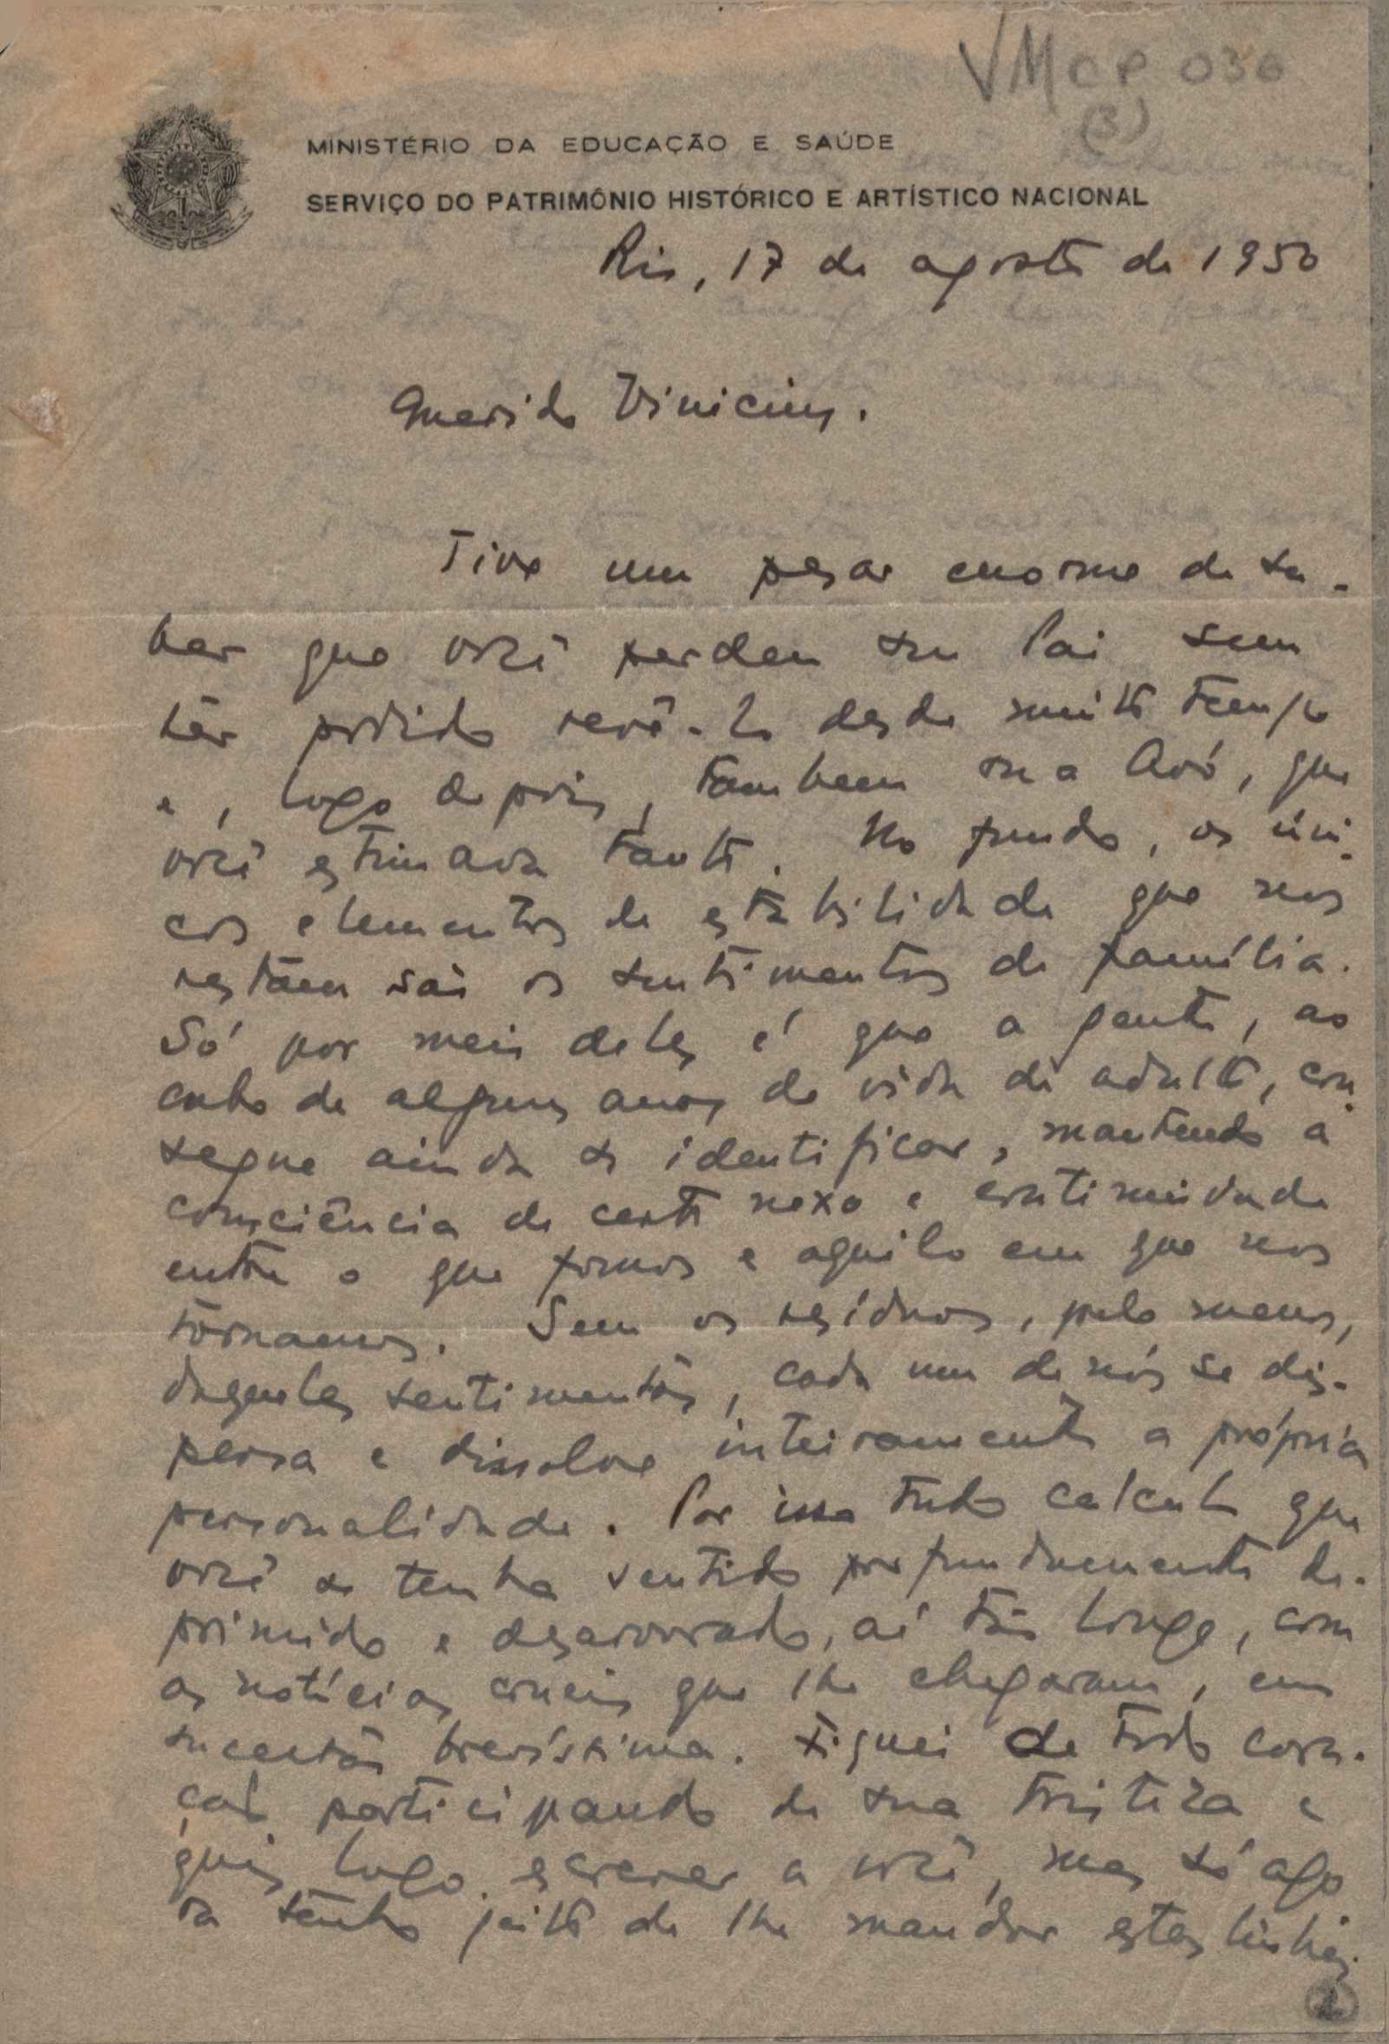 VMCP 036
(3)
MINISTÉRIO DA EDUCAÇÃO E SAÚDE
SERVIÇO DO PATRIMÔNIO HISTÓRICO E ARTÍSTICO NACIONAL
Rio, 17 de agosto de 1950
Querido Vinicius.
Tive um pesar enorme de sa-
ber que você perdeu seu Pai sem
ter podido revê-lo desde muito tempo
e, logo depois, tambem sua Avó, que
você estimava tanto. No fundo, os úni-
cos elementos de estabilidade que nos
restam são os sentimentos de família.
Só por meio deles é que a gente, ao
cabo de alguns anos de vida de adulto, con-
segue ainda se identificar, mantendo a
consciência de certo nexo e continuidade
entre o que fomos e aquilo em que nos
tornamos. Sem os resíduos, pelo menos,
daqueles sentimentos, cada um de nós se dis-
persa e dissolve inteiramente a própria
personalidade. Por isso tudo calculo que
você se tenha sentido profundamente de-
primido e desarvorado, aí tão longe, com
as notícias crueis que lhe chegaram, em
sucessão brevíssima. Fiquei de todo cora-
ção participando de sua tristeza e
quis logo escrever a você, mas só ago
ra tenho jeito de lhe mandar estas linhas.